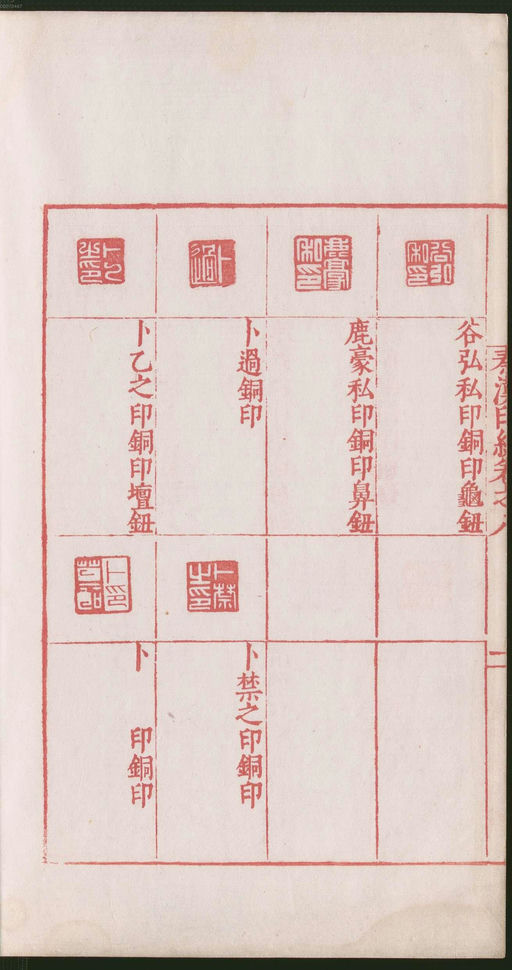 谷弘私印銅印龜鈕
鹿豪私印銅印鼻鈕
卜過銅印
卜禁之印銅印
卜乙之印銅印壇鈕
卜　　印銅印